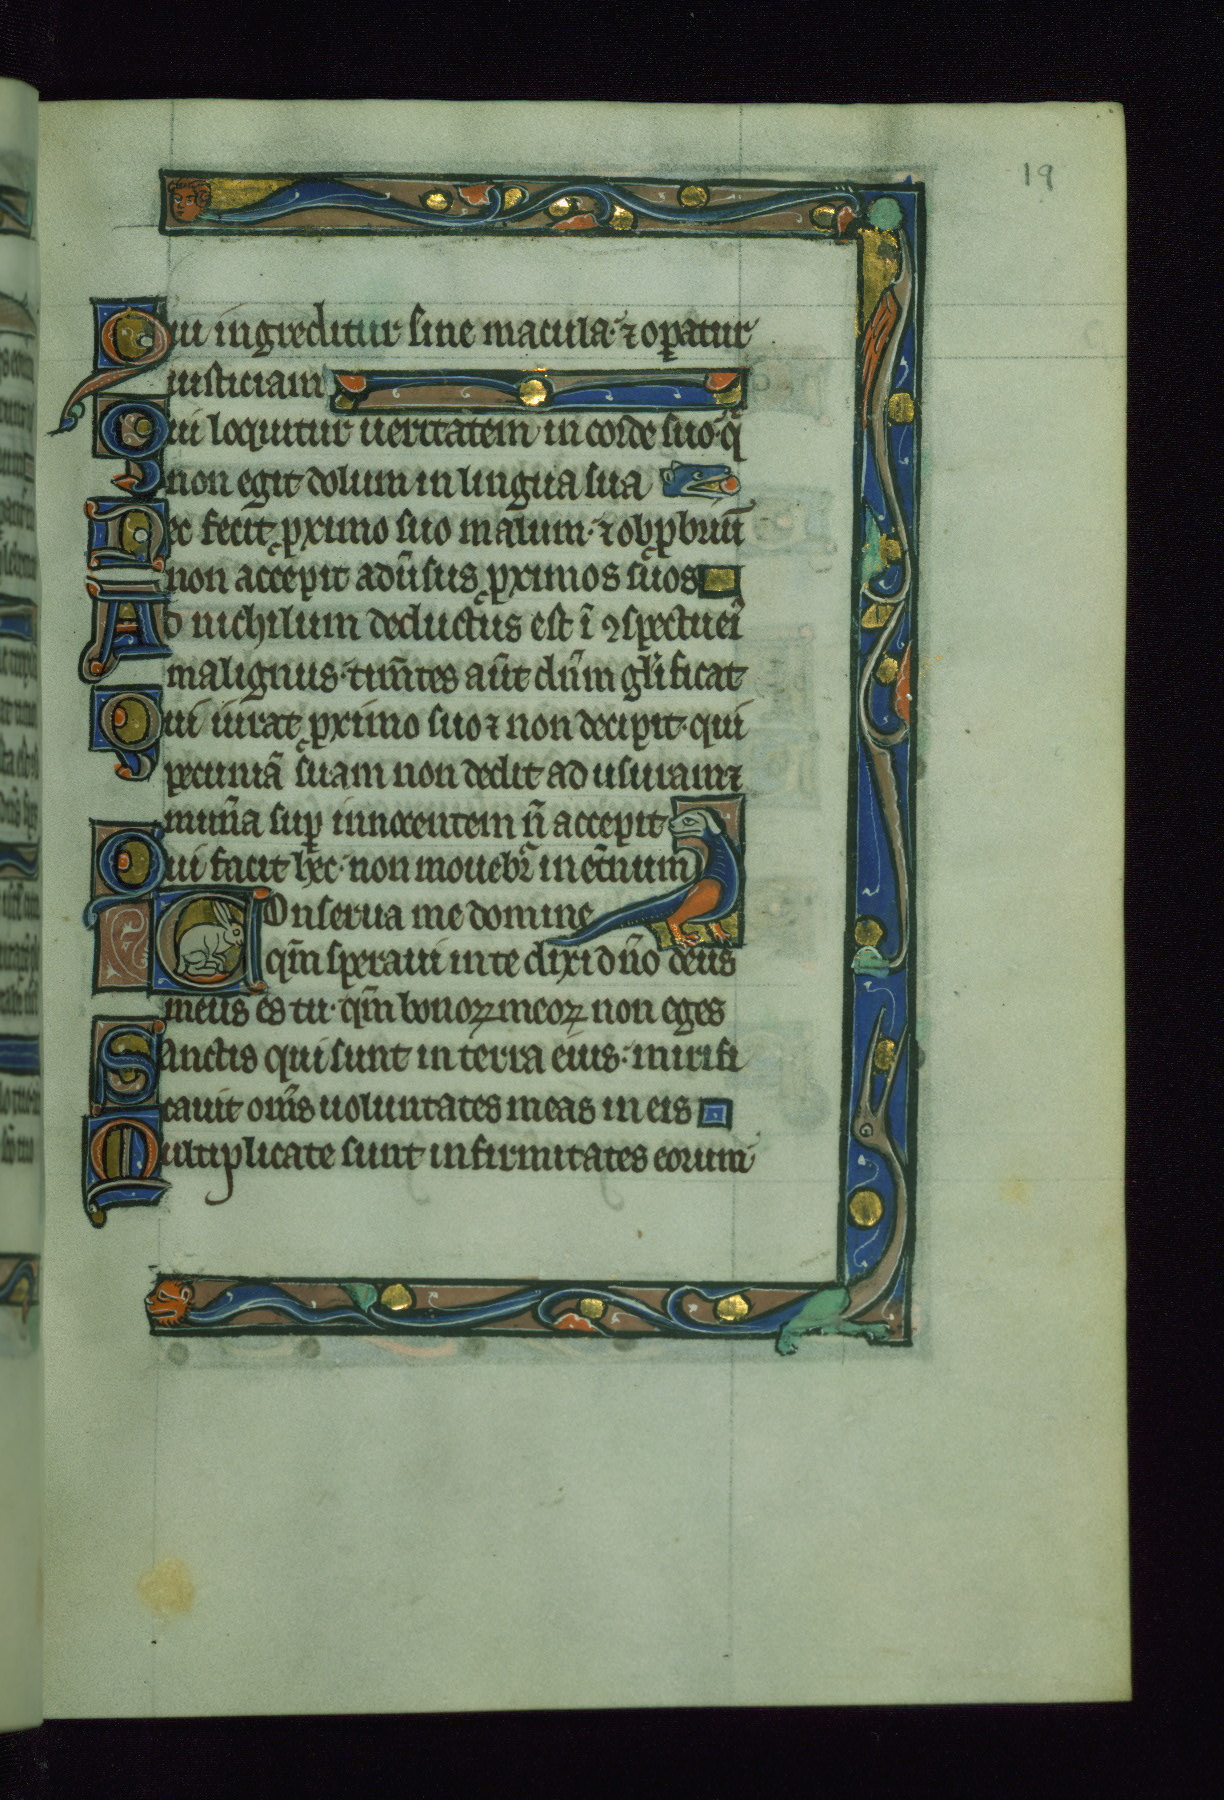 19
Qui ingreditur sine macula · ⁊ opatur
iusticiam
Qui loquitur ueritatem in corde suo · q̄
non egit dolum in lingua sua
Nec fecit ꝓximo suo malum · ⁊ obꝓbriū
non accepit adūsus ꝓximos suos
Ad nichilum deductus est ī ꝯspectu eī
malignus · tim̄tes aūt dn̄m glīficat
Qui iurat ꝓximo suo ⁊ non decipit · qui
pecuniā suam non dedit ad usuram ⁊
mun̄a sup̄ innocentem n̄ accepit
Qui facit hec · non mouebr̄ in et̄num
Conserua me domine
qm̄ speraui in te dixi dn̄o deus
meus es tu · qm̄ bonoꝝ meoꝝ non eges
Sanctis qui sunt in terra eius · mirifi
cauit om̄s uoluntates meas in eis
Multiplicate sunt infirmitates eorum